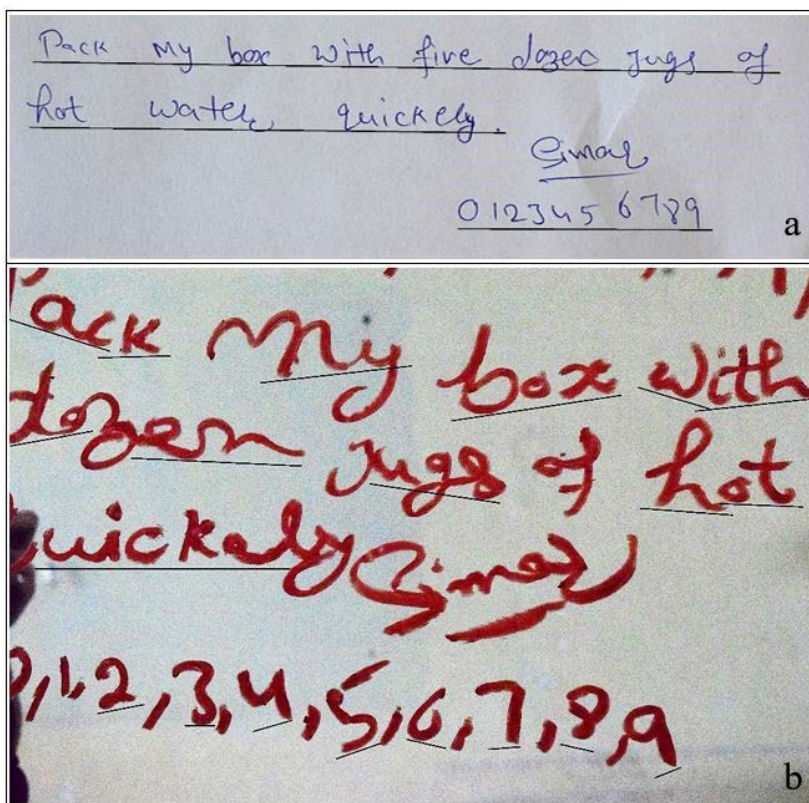 Pack My box with five dozen Jugs of
hot water quickely.
Simar
0123456789
a
Pack My box with
dozen Jugs of hot
quickely Simar
0,1,2,3,4,5,6,7,8,9
b